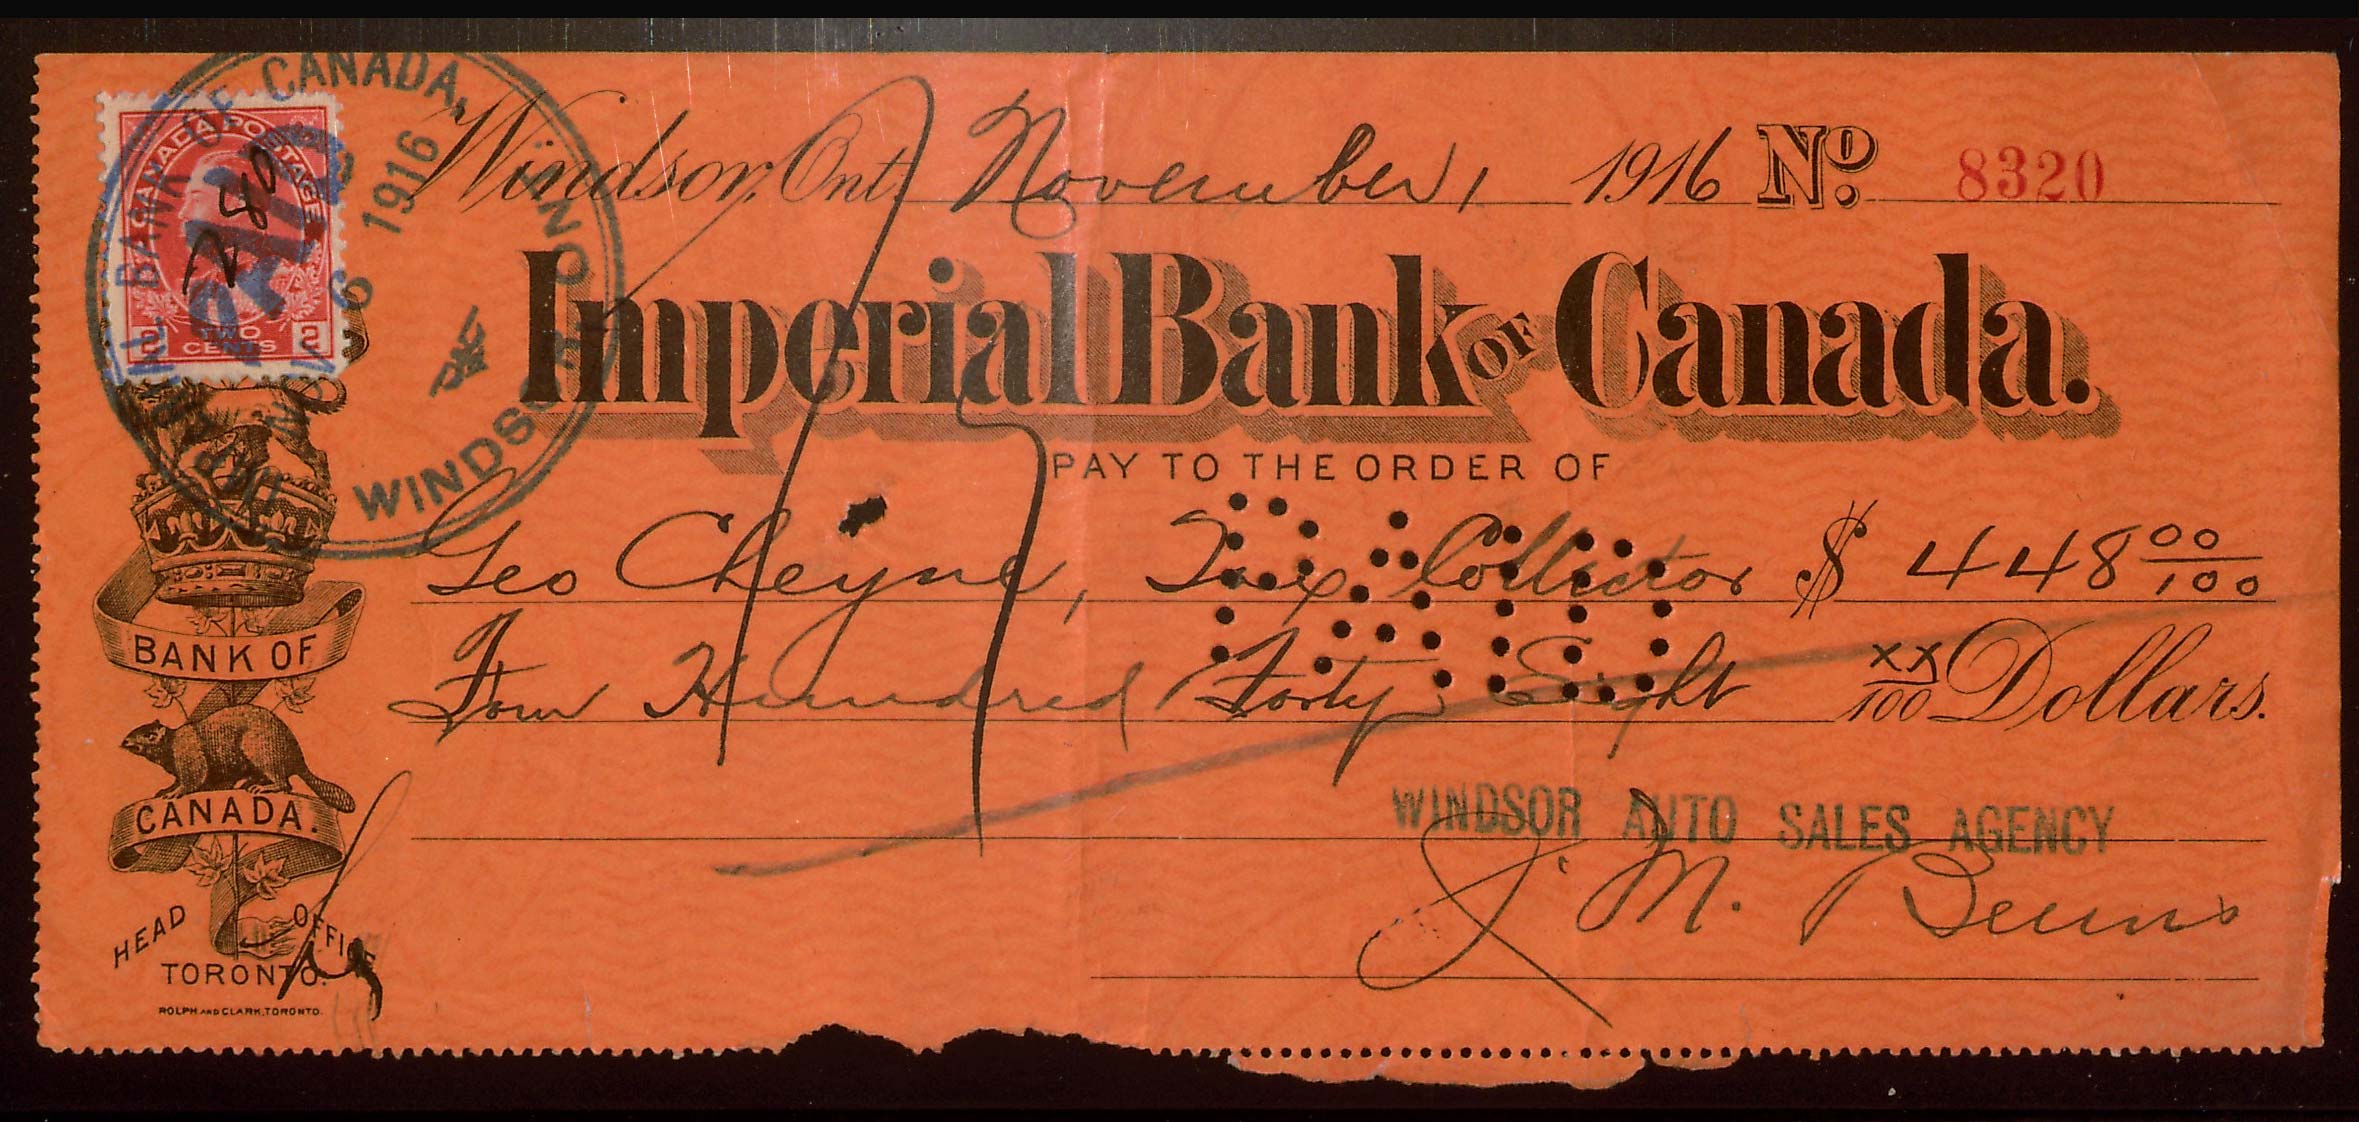 Windsor, Ont. November 1 1916 No. 8320
CANADA POSTAGE
280
2 TWO CENTS 2
PAID
IMPERIAL BANK OF CANADA, WINDSOR, ONT.
NOV 6 1916
Imperial Bank OF Canada.
PAY TO THE ORDER OF
Geo Cheyne, Tax Collector $ 448 00/100
Four Hundred Forty Eight xx/100 Dollars.
PAID
BANK OF
CANADA.
WINDSOR AUTO SALES AGENCY
J. M.
HEAD OFFICE
TORONTO.
ROLPH AND CLARK, TORONTO.